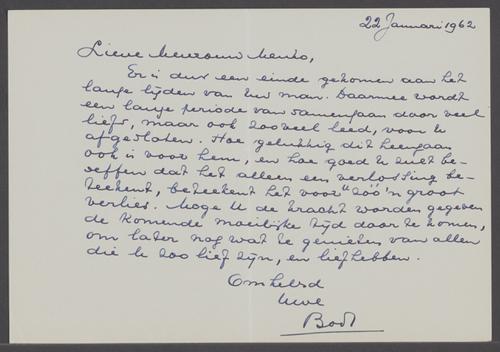 22 Januari 1962
Lieve Mevrouw
Er is dus een einde gekomen aan het
lange lijden van Uw man. Daarmee wordt
een lange periode van samengaan door veel
liefs, maar ook zooveel leed, voor U
afgesloten. Hoe gelukkig dit heengaan
ook is voor hem, en hoe goed U zult be-
seffen dat het alleen een verlossing be-
teekent, beteekent het voor U zóó'n groot
verlies. Moge U de kracht worden gegeven
de komende moeilijke tijd door te komen,
om later nog wat te genieten van allen
die U zoo lief zijn, en liefhebben.
Omhelsd